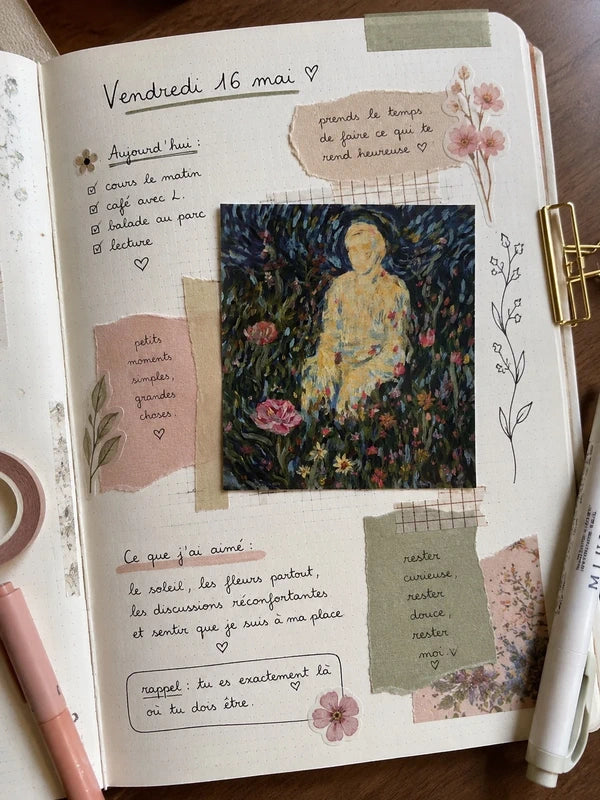 Vendredi 16 mai ♡
prends le temps
de faire ce qui te
rend heureuse ♡
Aujourd'hui :
☑ cours le matin
☑ café avec L.
☑ balade au parc
☑ lecture
♡
petits
moments
simples,
grandes
choses.
♡
Ce que j'ai aimé :
le soleil, les fleurs partout,
les discussions réconfortantes
et sentir que je suis à ma place
♡
rester
curieuse,
rester
douce,
rester
moi ♡
♡
rappel : tu es exactement là
où tu dois être. ♡